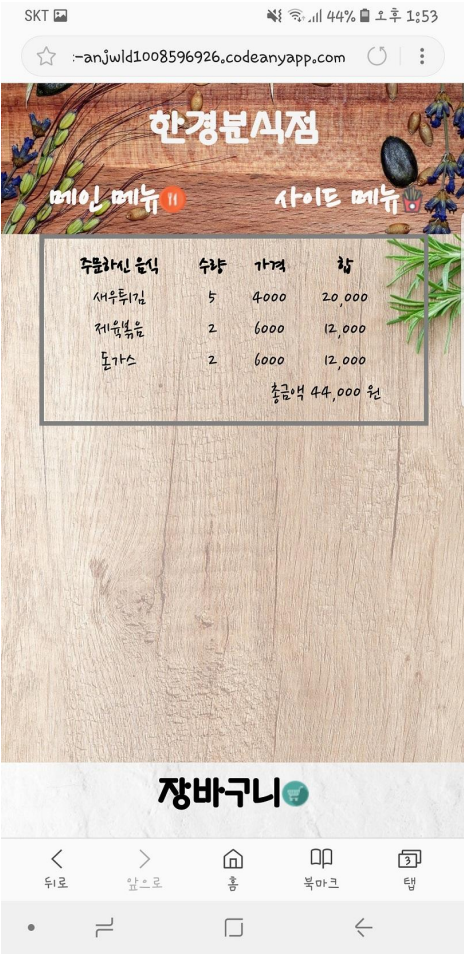 SKT 44% 오후 1:53
:-anjwld1008596926.codeanyapp.com
한경분식점
메인 메뉴 사이트 메뉴
주문하신 음식 수량 가격 합
새우튀김 5 4000 20,000
제육볶음 2 6000 12,000
돈가스 2 6000 12,000
총금액 44,000 원
장바구니
3
뒤로 앞으로 홈 북마크 탭